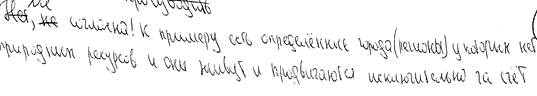 Нет, не согласна! К примеру есть определённые города (регионы) у которых нет
природных ресурсов и они живут и продвигаются исключительно за счёт